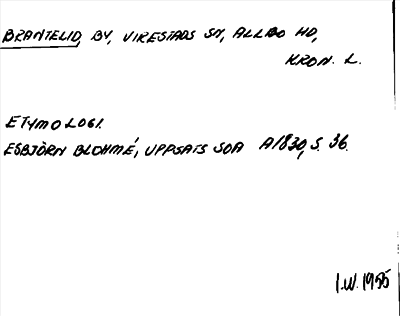 BRANTELID, BY, VIRESTADS SN, ALLBO HD,
KRON. L.
ETYMOLOGI.
ESBJÖRN BLOHMÉ, UPPSATS SOA A1830, S. 36.
I.W. 1955